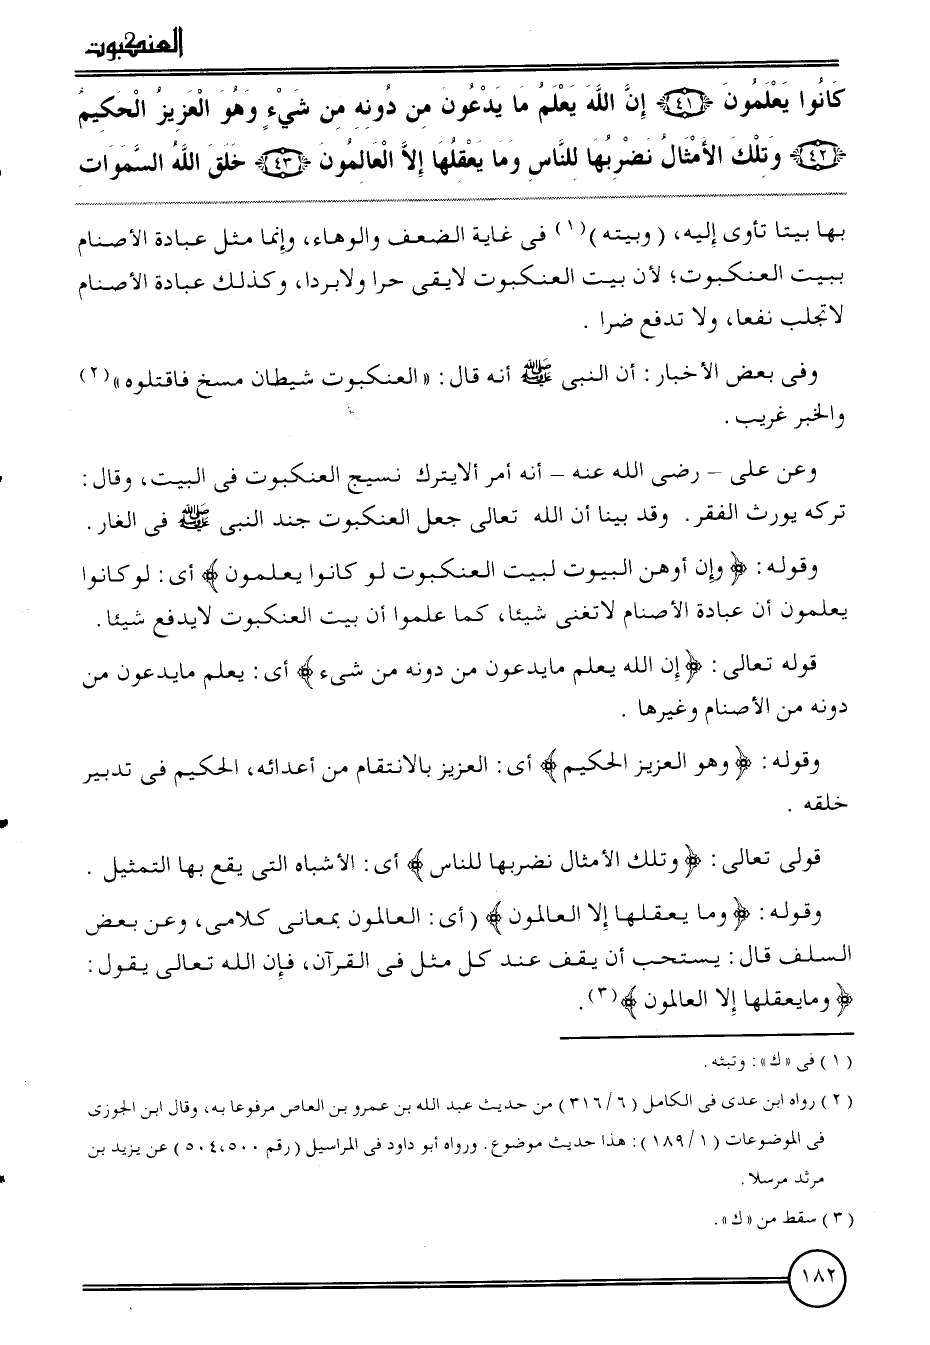 العنكبوت
كَانُوا يَعْلَمُونَ ﴿٤١﴾ إِنَّ اللَّهَ يَعْلَمُ مَا يَدْعُونَ مِن دُونِهِ مِن شَيْءٍ وَهُوَ الْعَزِيزُ الْحَكِيمُ
﴿٤٢﴾ وَتِلْكَ الأَمْثَالُ نَضْرِبُهَا لِلنَّاسِ وَمَا يَعْقِلُهَا إِلاَّ الْعَالِمُونَ ﴿٤٣﴾ خَلَقَ اللَّهُ السَّمَوَاتِ
بها بيتا تأوى إليه، (وبيته)(١) فى غاية الضعف والوهاء، وإنما مثل عبادة الأصنام
ببيت العنكبوت؛ لأن بيت العنكبوت لايقى حرا ولابردا، وكذلك عبادة الأصنام
لاتجلب نفعا، ولا تدفع ضرا .
وفى بعض الأخبار : أن النبى ﷺ أنه قال : «العنكبوت شيطان مسخ فاقتلوه»(٢)
والخبر غريب .
وعن على – رضى الله عنه – أنه أمر ألايترك نسيج العنكبوت فى البيت، وقال :
تركه يورث الفقر . وقد بينا أن الله تعالى جعل العنكبوت جند النبى ﷺ فى الغار .
وقوله : ﴿ وإن أوهن البيوت لبيت العنكبوت لو كانوا يعلمون ﴾ أى : لو كانوا
يعلمون أن عبادة الأصنام لاتغنى شيئا، كما علموا أن بيت العنكبوت لايدفع شيئا .
قوله تعالى : ﴿ إن الله يعلم مايدعون من دونه من شىء ﴾ أى : يعلم مايدعون من
دونه من الأصنام وغيرها .
وقوله : ﴿ وهو العزيز الحكيم ﴾ أى : العزيز بالانتقام من أعدائه، الحكيم فى تدبير
خلقه .
قولى تعالى : ﴿ وتلك الأمثال نضربها للناس ﴾ أى : الأشباه التى يقع بها التمثيل .
وقوله : ﴿ وما يعقلها إلا العالمون ﴾ (أى : العالمون بمعانى كلامى، وعن بعض
السلف قال : يستحب أن يقف عند كل مثل فى القرآن، فإن الله تعالى يقول :
﴿ ومايعقلها إلا العالمون ﴾(٣).
(١) فى «ك» : وتبثه .
(٢) رواه ابن عدى فى الكامل (٣١٦/٦) من حديث عبد الله بن عمرو بن العاص مرفوعا به، وقال ابن الجوزى
فى الموضوعات (١٨٩/١) : هذا حديث موضوع . ورواه أبو داود فى المراسيل (رقم ٥٠٤،٥٠٠) عن يزيد بن
مرثد مرسلا .
(٣) سقط من «ك» .
١٨٢